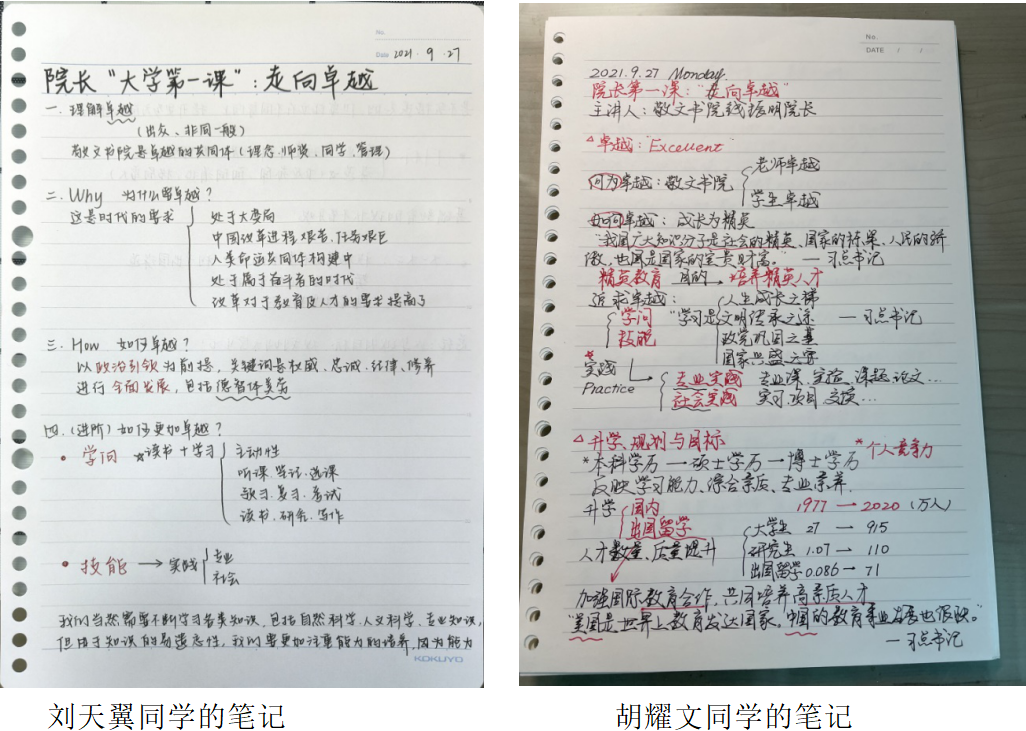 No.
Date 2021. 9. 27
院长"大学第一课":走向卓越
一. 理解卓越
(出众、非同一般)
敬文书院是卓越的共同体(理念.师资.同学.管理)
二. Why 为什么要卓越?
这是时代的要求
处于大变局
中国改革进程艰苦、任务艰巨
人类命运共同体构建中
处于属于奋斗者的时代
改革对于教育及人才的要求提高了
三. How 如何卓越?
以政治引领为前提,关键词是权威、忠诚、纪律、修养
进行全面发展,包括德智体美劳
四.(进阶)如何更加卓越?
学问 读书+学习
主动性
听课.笔记.选课
预习.复习.考试
读书.研究.写作
技能 → 实践
专业
社会
我们当然需要不断学习各类知识,包括自然科学.人文科学.专业知识,
但由于知识的易遗忘性,我们需更加注意能力的培养,因为能力
KOKUYO
刘天翼同学的笔记
No.
DATE / /
2021.9.27 Monday.
院长第一课:"走向卓越"
主讲人:敬文书院钱振明院长
△卓越:"Excellent"
何为卓越:敬文书院
老师卓越
学生卓越
如何卓越:成长为精英
"我国广大知识分子是社会的精英、国家的栋梁、人民的骄
傲,也是国家的宝贵财富。" — 习总书记
精英教育 目的→ 培养精英人才
追求卓越:
学问
技能
"学习是
人生成长之梯
文明传承之途
政党巩固之基
国家兴盛之要
— 习总书记
*实践
Practice
专业实践 专业课、实验、课题、论文...
社会实践 实习、项目、交换...
△升学、规划与目标
*本科学历 → 硕士学历 → 博士学历 *个人竞争力
反映学习能力、综合素质、专业素养.
升学
国内
出国留学
1977 → 2020 (万人)
大学生 27 → 915
研究生 1.07 → 110
出国留学 0.086 → 71
人才数量、质量提升
加强国际教育合作,共同培养高素质人才
"美国是世界上教育发达国家,中国的教育事业发展也很快。"
— 习总书记
胡耀文同学的笔记